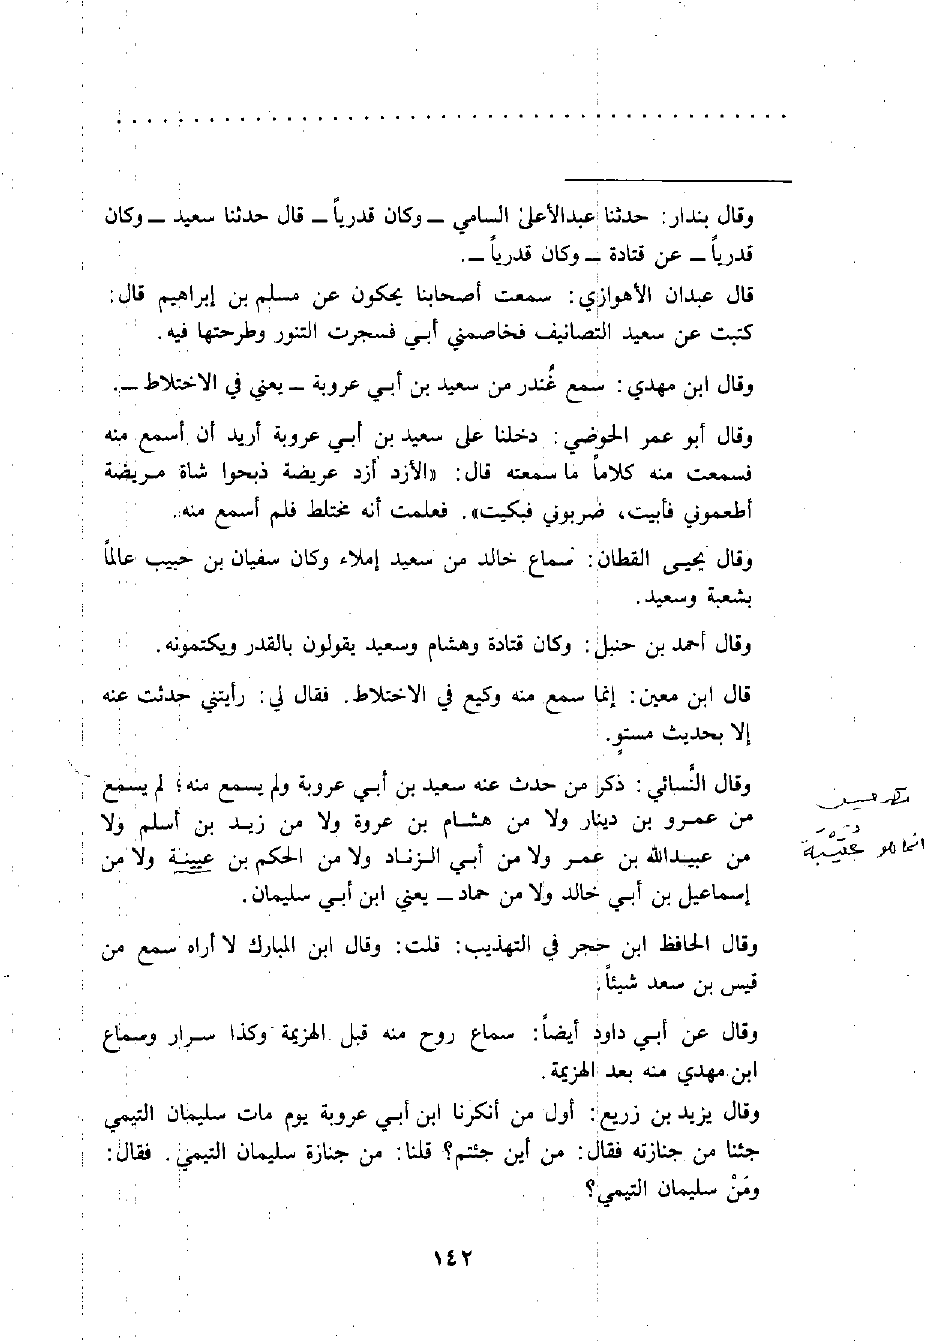 وقال بندار: حدثنا عبدالأعلىٰ السامي ــ وكان قدرياً ــ قال حدثنا سعيد ــ وكان
قدرياً ــ عن قتادة ــ وكان قدرياً ــ.
قال عبدان الأهوازي: سمعت أصحابنا يحكون عن مسلم بن إبراهيم قال:
كتبت عن سعيد التصانيف فخاصمني أبي فسجرت التنور وطرحتها فيه.
وقال ابن مهدي: سمع غُندر من سعيد بن أبي عروبة ــ يعني في الاختلاط ــ.
وقال أبو عمر الحوضي: دخلنا على سعيد بن أبي عروبة أريد أن أسمع منه
فسمعت منه كلاماً ما سمعته قال: «الأزد أزد عريضة ذبحوا شاة مريضة
أطعموني فأبيت، ضربوني فبكيت». فعلمت أنه مختلط فلم أسمع منه.
وقال يحيى القطان: سماع خالد من سعيد إملاء وكان سفيان بن حبيب عالماً
بشعبة وسعيد.
وقال أحمد بن حنبل: وكان قتادة وهشام وسعيد يقولون بالقدر ويكتمونه.
قال ابن معين: إنما سمع منه وكيع في الاختلاط. فقال لي: رأيتني حدثت عنه
إلا بحديث مستوٍ.
وقال النَّسائي: ذكر من حدث عنه سعيد بن أبي عروبة ولم يسمع منه؛ لم يسمع
من عمرو بن دينار ولا من هشام بن عروة ولا من زيد بن أسلم ولا
من عبيدالله بن عمر ولا من أبي الزناد ولا من الحكم بن عيينة ولا من
إسماعيل بن أبي خالد ولا من حماد ــ يعني ابن أبي سليمان.
انما هو عتيبة
وقال الحافظ ابن حجر في التهذيب: قلت: وقال ابن المبارك لا أراه سمع من
قيس بن سعد شيئاً.
وقال عن أبي داود أيضاً: سماع روح منه قبل الهزيمة وكذا سرار وسماع
ابن مهدي منه بعد الهزيمة.
وقال يزيد بن زريع: أول من أنكرنا ابن أبي عروبة يوم مات سليمان التيمي
جئنا من جنازته فقال: من أين جئتم؟ قلنا: من جنازة سليمان التيمي. فقال:
ومَنْ سليمان التيمي؟
١٤٢